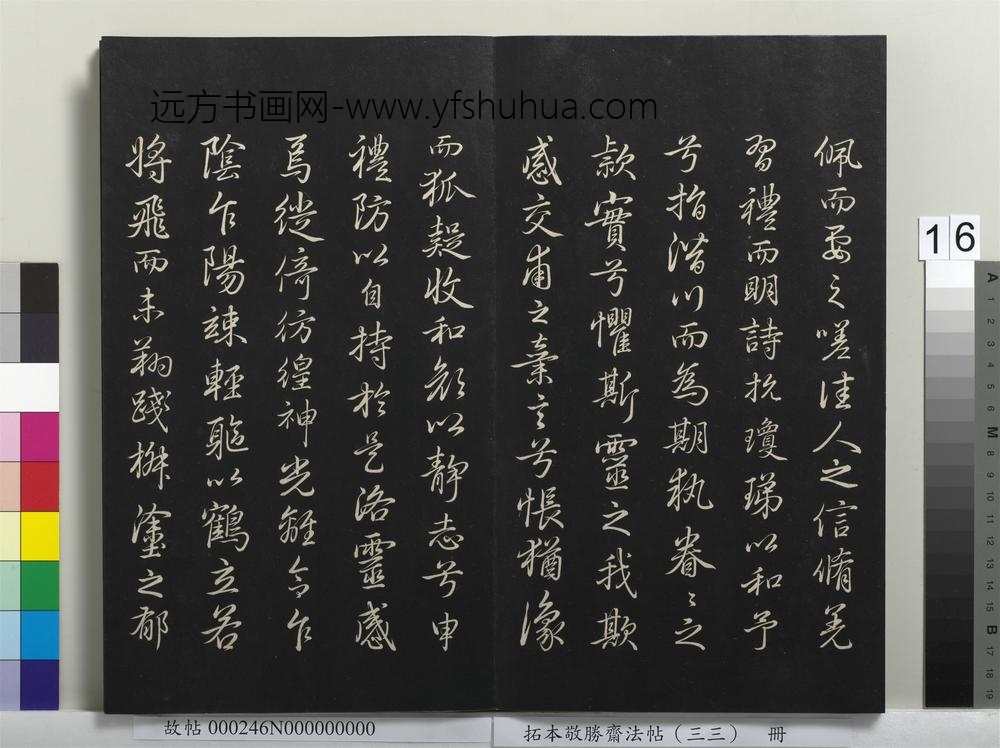 远方书画网-www.yfshuhua.com
佩而要之嗟佳人之信脩羌
習禮而明詩抗瓊珶以和予
兮指潛川而為期執眷〻之
款實兮懼斯靈之我欺
感交甫之棄言兮悵猶豫
而狐疑收和顏以靜志兮申
禮防以自持於是洛靈感
焉徙倚彷徨神光離合乍
陰乍陽竦輕軀以鶴立若
將飛而未翔踐椒塗之郁
16
A 1 2 3 4 5 6 M 8 9 10 11 12 13 14 15 B 17 18 19
故帖 000246N000000000
拓本敬勝齋法帖（三三） 冊